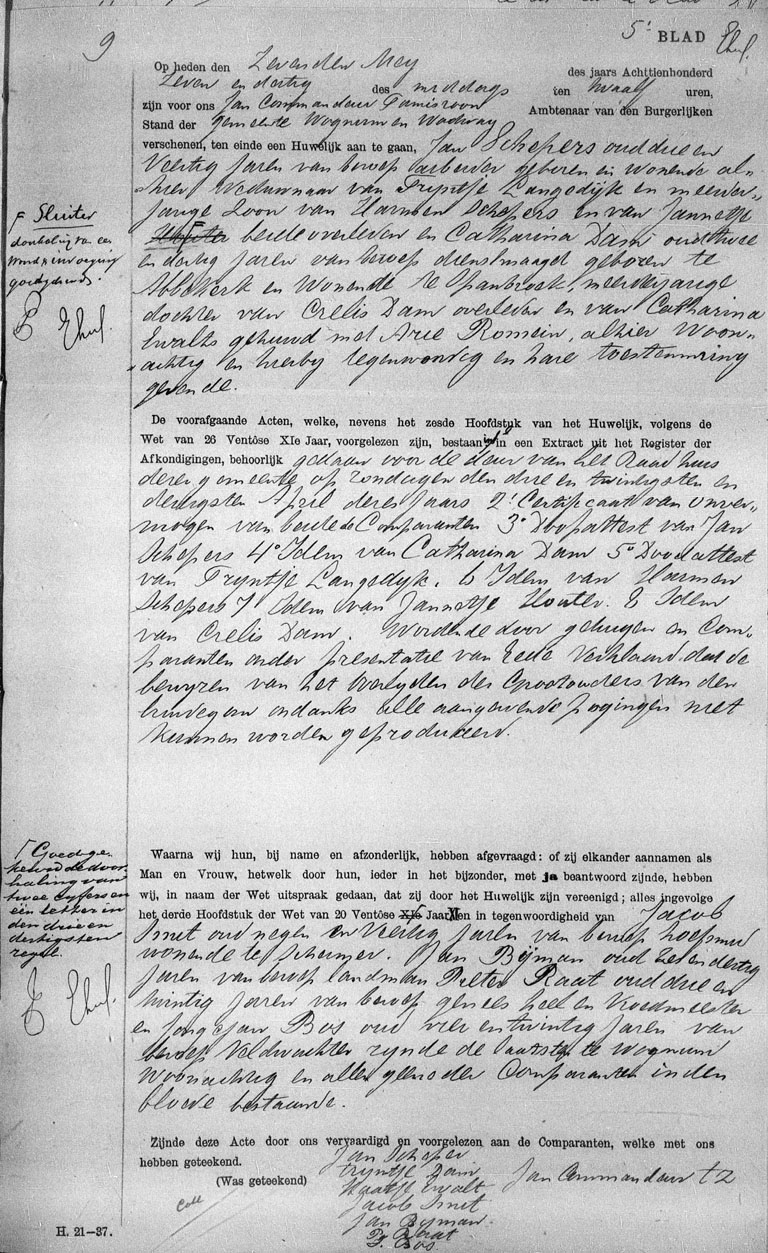 9
5e BLAD
Op heden den Zevenden Mey des jaars Achttienhonderd
Zeven en dertig des middags ten twaalf uren,
zijn voor ons Jan Commandeur Ambtenaar van den Burgerlijken
Stand der gemeente Wognum en Wadway
verschenen, ten einde een Huwelijk aan te gaan, Jan Schepers oud drie en
Veertig Jaren van beroep arbeider geboren en Wonende al-
hier Weduwnaar van Tryntje Langedijk en meerder-
jarige Zoon van Harmen Schepers en van Jannetje
beide overleden en Catharina Dam oud twee
en dertig Jaren van beroep dienstmaagd geboren te
Abbekerk en Wonende te Spanbroek, meerderjarige
dochter van Crelis Dam overleden en van Catharina
Ewalts gehuwd met Arie Romein, alhier Woon-
achtig en hierby tegenwoordig en hare toestemming
gevende.
F Sluiter
doorhaling van een
woord &
goedgekeurd.
De voorafgaande Acten, welke, nevens het zesde Hoofdstuk van het Huwelijk, volgens de
Wet van 26 Ventôse XIe Jaar, voorgelezen zijn, bestaan in een Extract uit het Register der
Afkondigingen, behoorlijk gedaan voor de deur van het Raadhuis
dezer gemeente op zondagen den drie en twintigsten en
dertigsten April dezes Jaars 2e Certificaat van onver-
mogen van beide de Comparanten 3e Doopattest van Jan
Schepers 4e Idem van Catharina Dam 5e Doodattest
van Tryntje Langedyk. 6 Idem van Harmen
Schepers 7 Idem van Jannetje Houter. 8 Idem
van Crelis Dam. Wordende door getuigen en Com-
paranten onder presentatie van Eede Verklaard dat de
bewyzen van het Overlyden der Grootouders van den
bruidegom ondanks alle aangewende pogingen niet
kunnen worden geproduceerd.
Waarna wij hun, bij name en afzonderlijk, hebben afgevraagd: of zij elkander aannamen als
Man en Vrouw, hetwelk door hun, ieder in het bijzonder, met ja beantwoord zijnde, hebben
wij, in naam der Wet uitspraak gedaan, dat zij door het Huwelijk zijn vereenigd; alles ingevolge
het derde Hoofdstuk der Wet van 20 Ventôse XIe Jaar XI en in tegenwoordigheid van Jacob
Smet oud negen en Veertig Jaren van beroep
wonende te Schermer. Jan Bijman oud Zes en dertig
Jaren van beroep landman Pieter Raat oud drie en
Jaren van beroep genees heer en Vroedmeester
en Jan Bos oud vier en twintig Jaren van
beroep Veldwachter zynde de laatste te Wognum
Woonachtig en allen geen der Comparanten in den
bloede bestaande.
F Goedge-
keurd de door-
haling van
twee cyfers en
één letter in
den drie en
dertigsten
regel.
Zijnde deze Acte door ons vervaardigd en voorgelezen aan de Comparanten, welke met ons
hebben geteekend.
(Was geteekend)
Jan Scheper
Tryntje Dam
Ewalt
Jacob Smet
Jan Byman.
P. Raat
Bos
Jan Commandeur
H. 21—37.